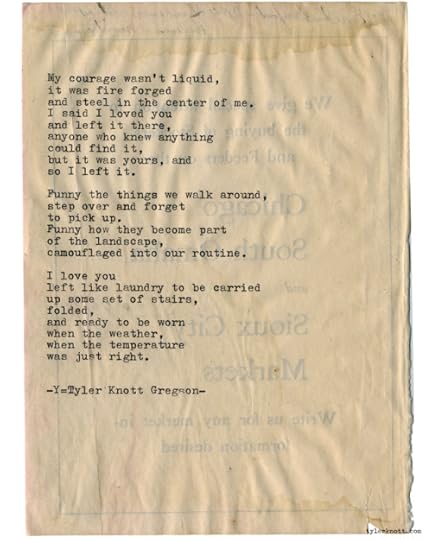 My courage wasn't liquid,
it was fire forged
and steel in the center of me.
I said I loved you
and left it there,
anyone who knew anything
could find it,
but it was yours, and
so I left it.
Funny the things we walk around,
step over and forget
to pick up.
Funny how they become part
of the landscape,
camouflaged into our routine.
I love you
left like laundry to be carried
up some set of stairs,
folded,
and ready to be worn
when the weather,
when the temperature
was just right.
-Y=Tyler Knott Gregson-
We give
the buying
and Feeders
Chicago
South
and
Sioux City
Markets
Write us for any market in-
formation desired
tylerknott.com